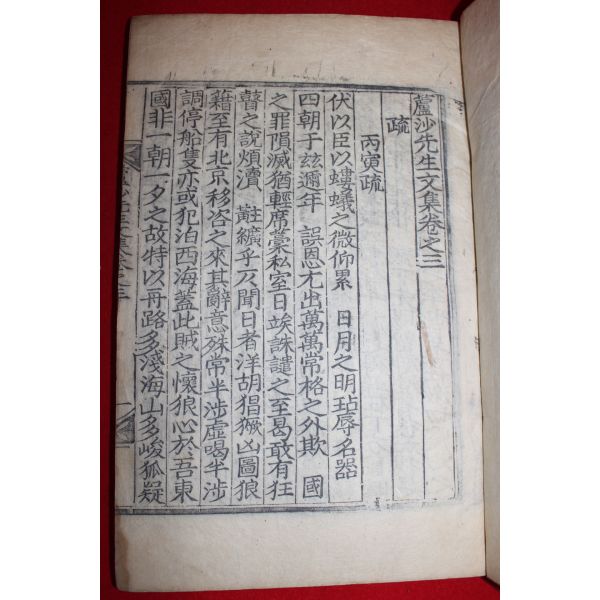 蘆沙先生文集卷之三
疏
丙寅疏
伏以臣以螻蟻之微仰累 日月之明玷辱名器
四朝于玆邇年 誤恩尤出萬萬常格之外欺 國
之罪隕滅猶輕席藁私室日竢誅譴之至曷敢有狂
瞽之說煩瀆 黈纊乎仄聞日者洋胡猖獗凶圖狼
藉至有北京移咨之來其辭意殊常半涉虛喝半涉
調停船隻亦或犯泊西海蓋此賊之懷狼心於吾東
國非一朝一夕之故特以舟路多淺海山多峻狐疑